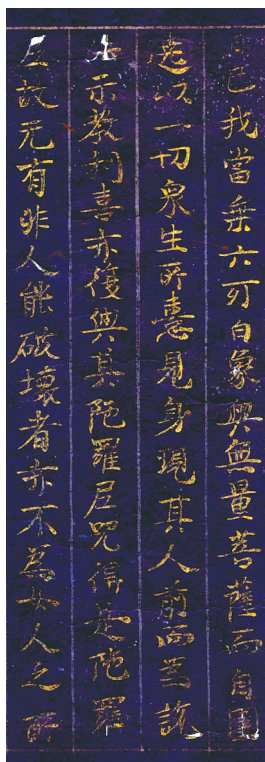 日已我當乘六牙白象與無量菩薩而自圍
遶以一切衆生所憙見身現其人前而為說
法示教利喜亦復與其陀羅尼呪得是陀羅
尼故无有非人能破壞者亦不為女人之所